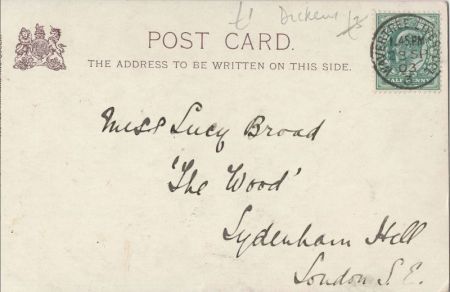 £1 Dickens £3
POST CARD.
THE ADDRESS TO BE WRITTEN ON THIS SIDE.
Miss Lucy Broad
'The Wood'
Sydenham Hill
London S.E.